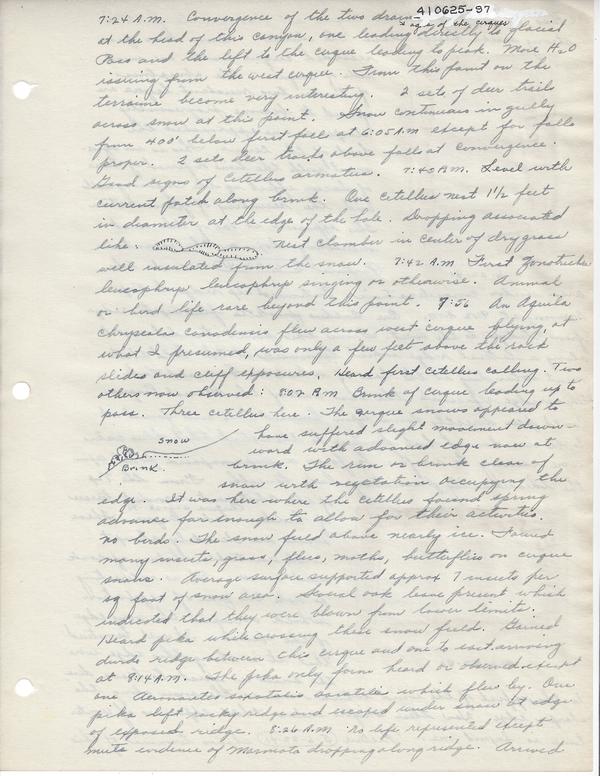 410625-97
7:24 A.M. Convergence of the two drain-
ages of the cirques
at the head of this canyon, one leading directly to glacial
Pass and the left to the cirque leading to peak. More H2O
issuing from the west cirque. From this point on the
terraine become very interesting. 2 sets of deer trails
across snow at this point. Snow continuous in gully
from 400' below first fall at 6:05 A.M except for falls
proper. 2 sets deer tracks above falls at convergence.
Good signs of Citellus armatus. 7:40 A.M. Level with
current along brink. One citellus nest 1 1/2 feet
in diameter at the edge of the hole. Dropping associated
like: nest chamber in center of dry grass
well insulated from the snow. 7:42 A.M First Zonotrichia
leucophrys leucophrys singing or otherwise. Animal
or bird life rare beyond this point. 7:56 An Aquila
chrysaëla canadensis flew across west cirque flying, at
what I presumed, was only a few feet above the rock
slides and cliff exposures. Heard first citellus calling. Two
others now observed: 8:02 A M Brink of cirque leading up to
pass. Three citellus here. The cirque snows appeared to
have suffered slight movement down-
ward with advanced edge now at
brink. The rim or brink clear of
snow with vegetation occupying the
snow
Brink.
edge. It was here where the citellus found spring
advance far enough to allow for their activities.
No birds. The snow field above nearly ice. Found
many insects, grass, flies, moths, butterflies on cirque
snows. Average surface supported approx 7 insects per
sq foot of snow area. Several oak leaves present which
indicated that they were blown from lower limits.
Heard pika while crossing these snow field. Gained
ridge between this cirque and one to east arriving
at 8:14 A.M. The pika only form heard or observed except
one Aeronautes saxatalis saxatalis which flew by. One
pika left rocky ridge and escaped under snow at edge
of exposed ridge. 8:26 A.M No life represented except
mute evidence of Marmota dropping along ridge. Arrived